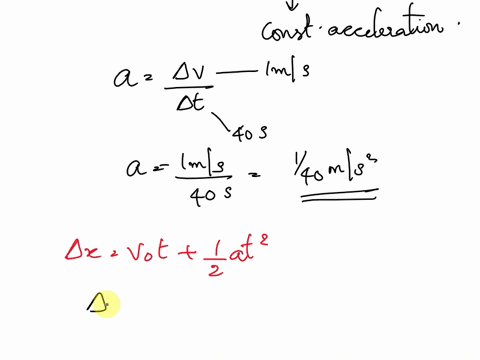 const. acceleration.
a = Δv/Δt — 1m/s
40 s
a = 1m/s / 40 s = 1/40 m/s²
Δx = v₀t + 1/2 at²
Δ